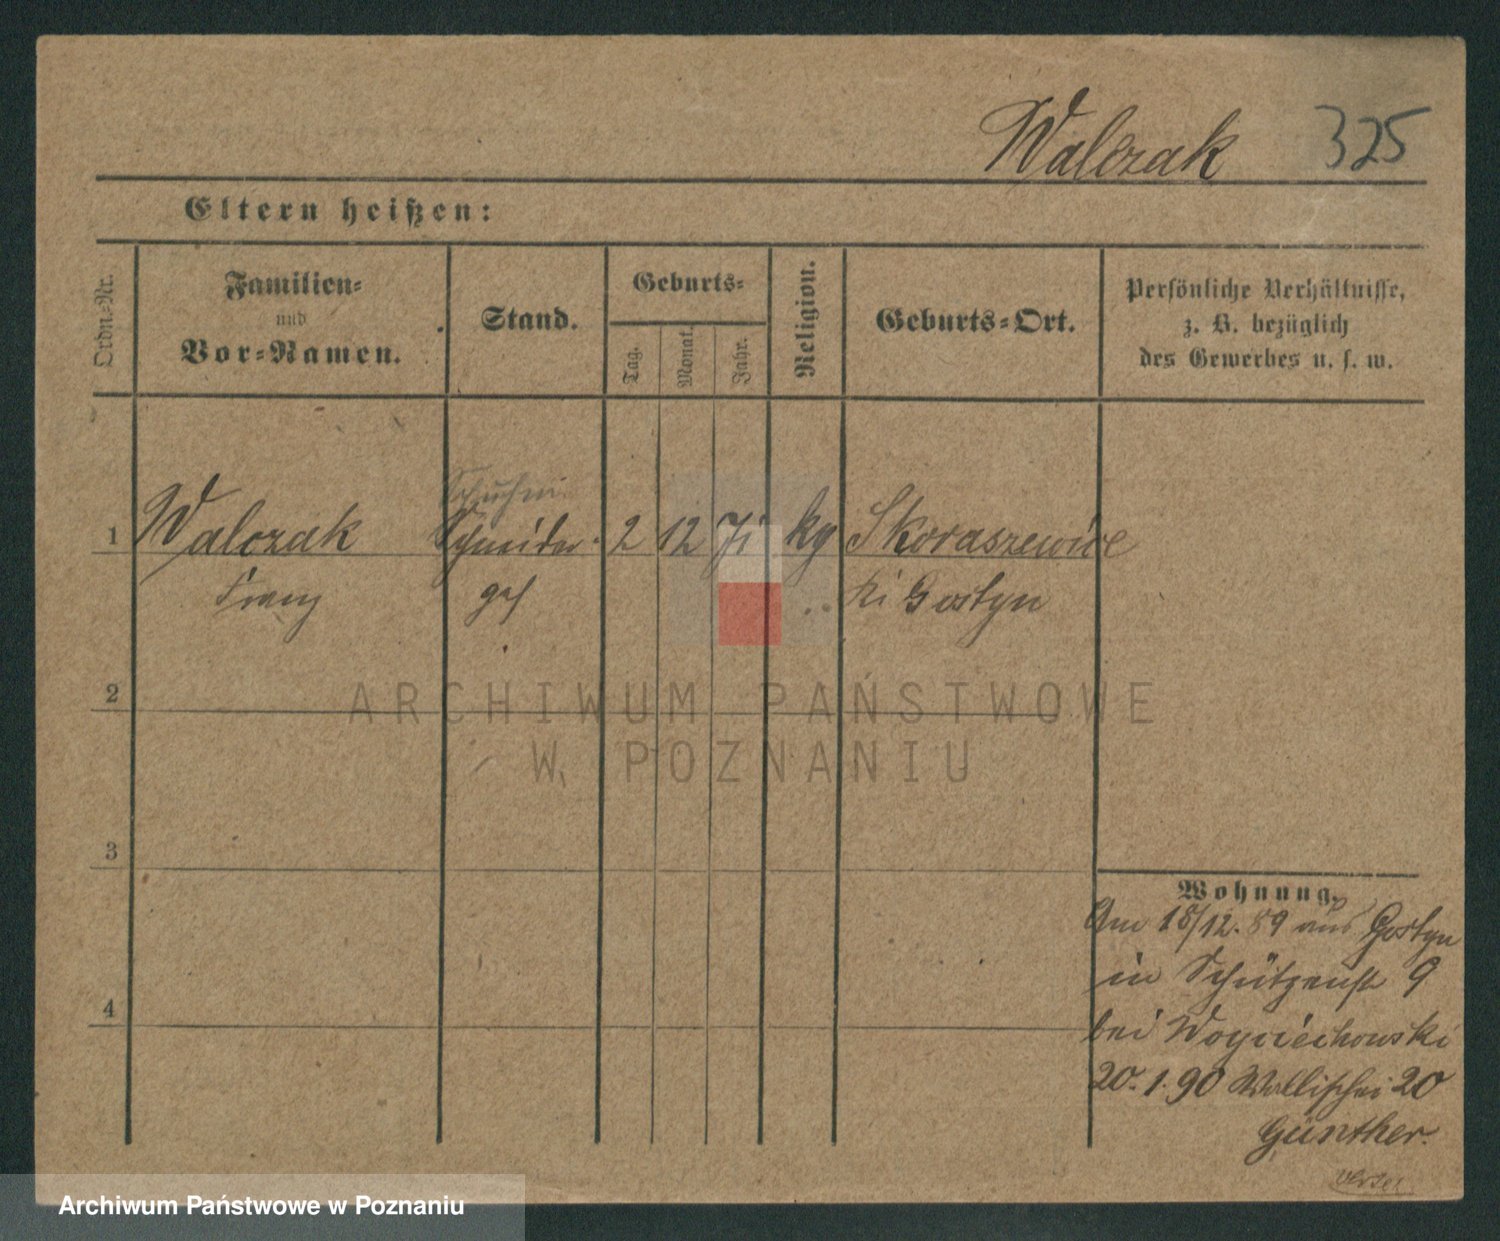 Walczak 325
Eltern heißen:
Ordn.-Nr.
Familien-
und
Vor-Namen.
Stand.
Geburts-
Tag.
Monat.
Jahr.
Religion.
Geburts-Ort.
Persönliche Verhältnisse,
z. B. bezüglich
des Gewerbes u. s. w.
1 Walczak Schneider 2 12 71 kg Skoraszewice
Franz gas Kr Gostyn
2
ARCHIWUM PAŃSTWOWE
W POZNANIU
3
4
Wohnung.
Am 18/12. 89 aus Gostyn
in Schützenstr 9
bei Woyciechowski
20. 1. 90 Wallischei 20
Günther.
Archiwum Państwowe w Poznaniu